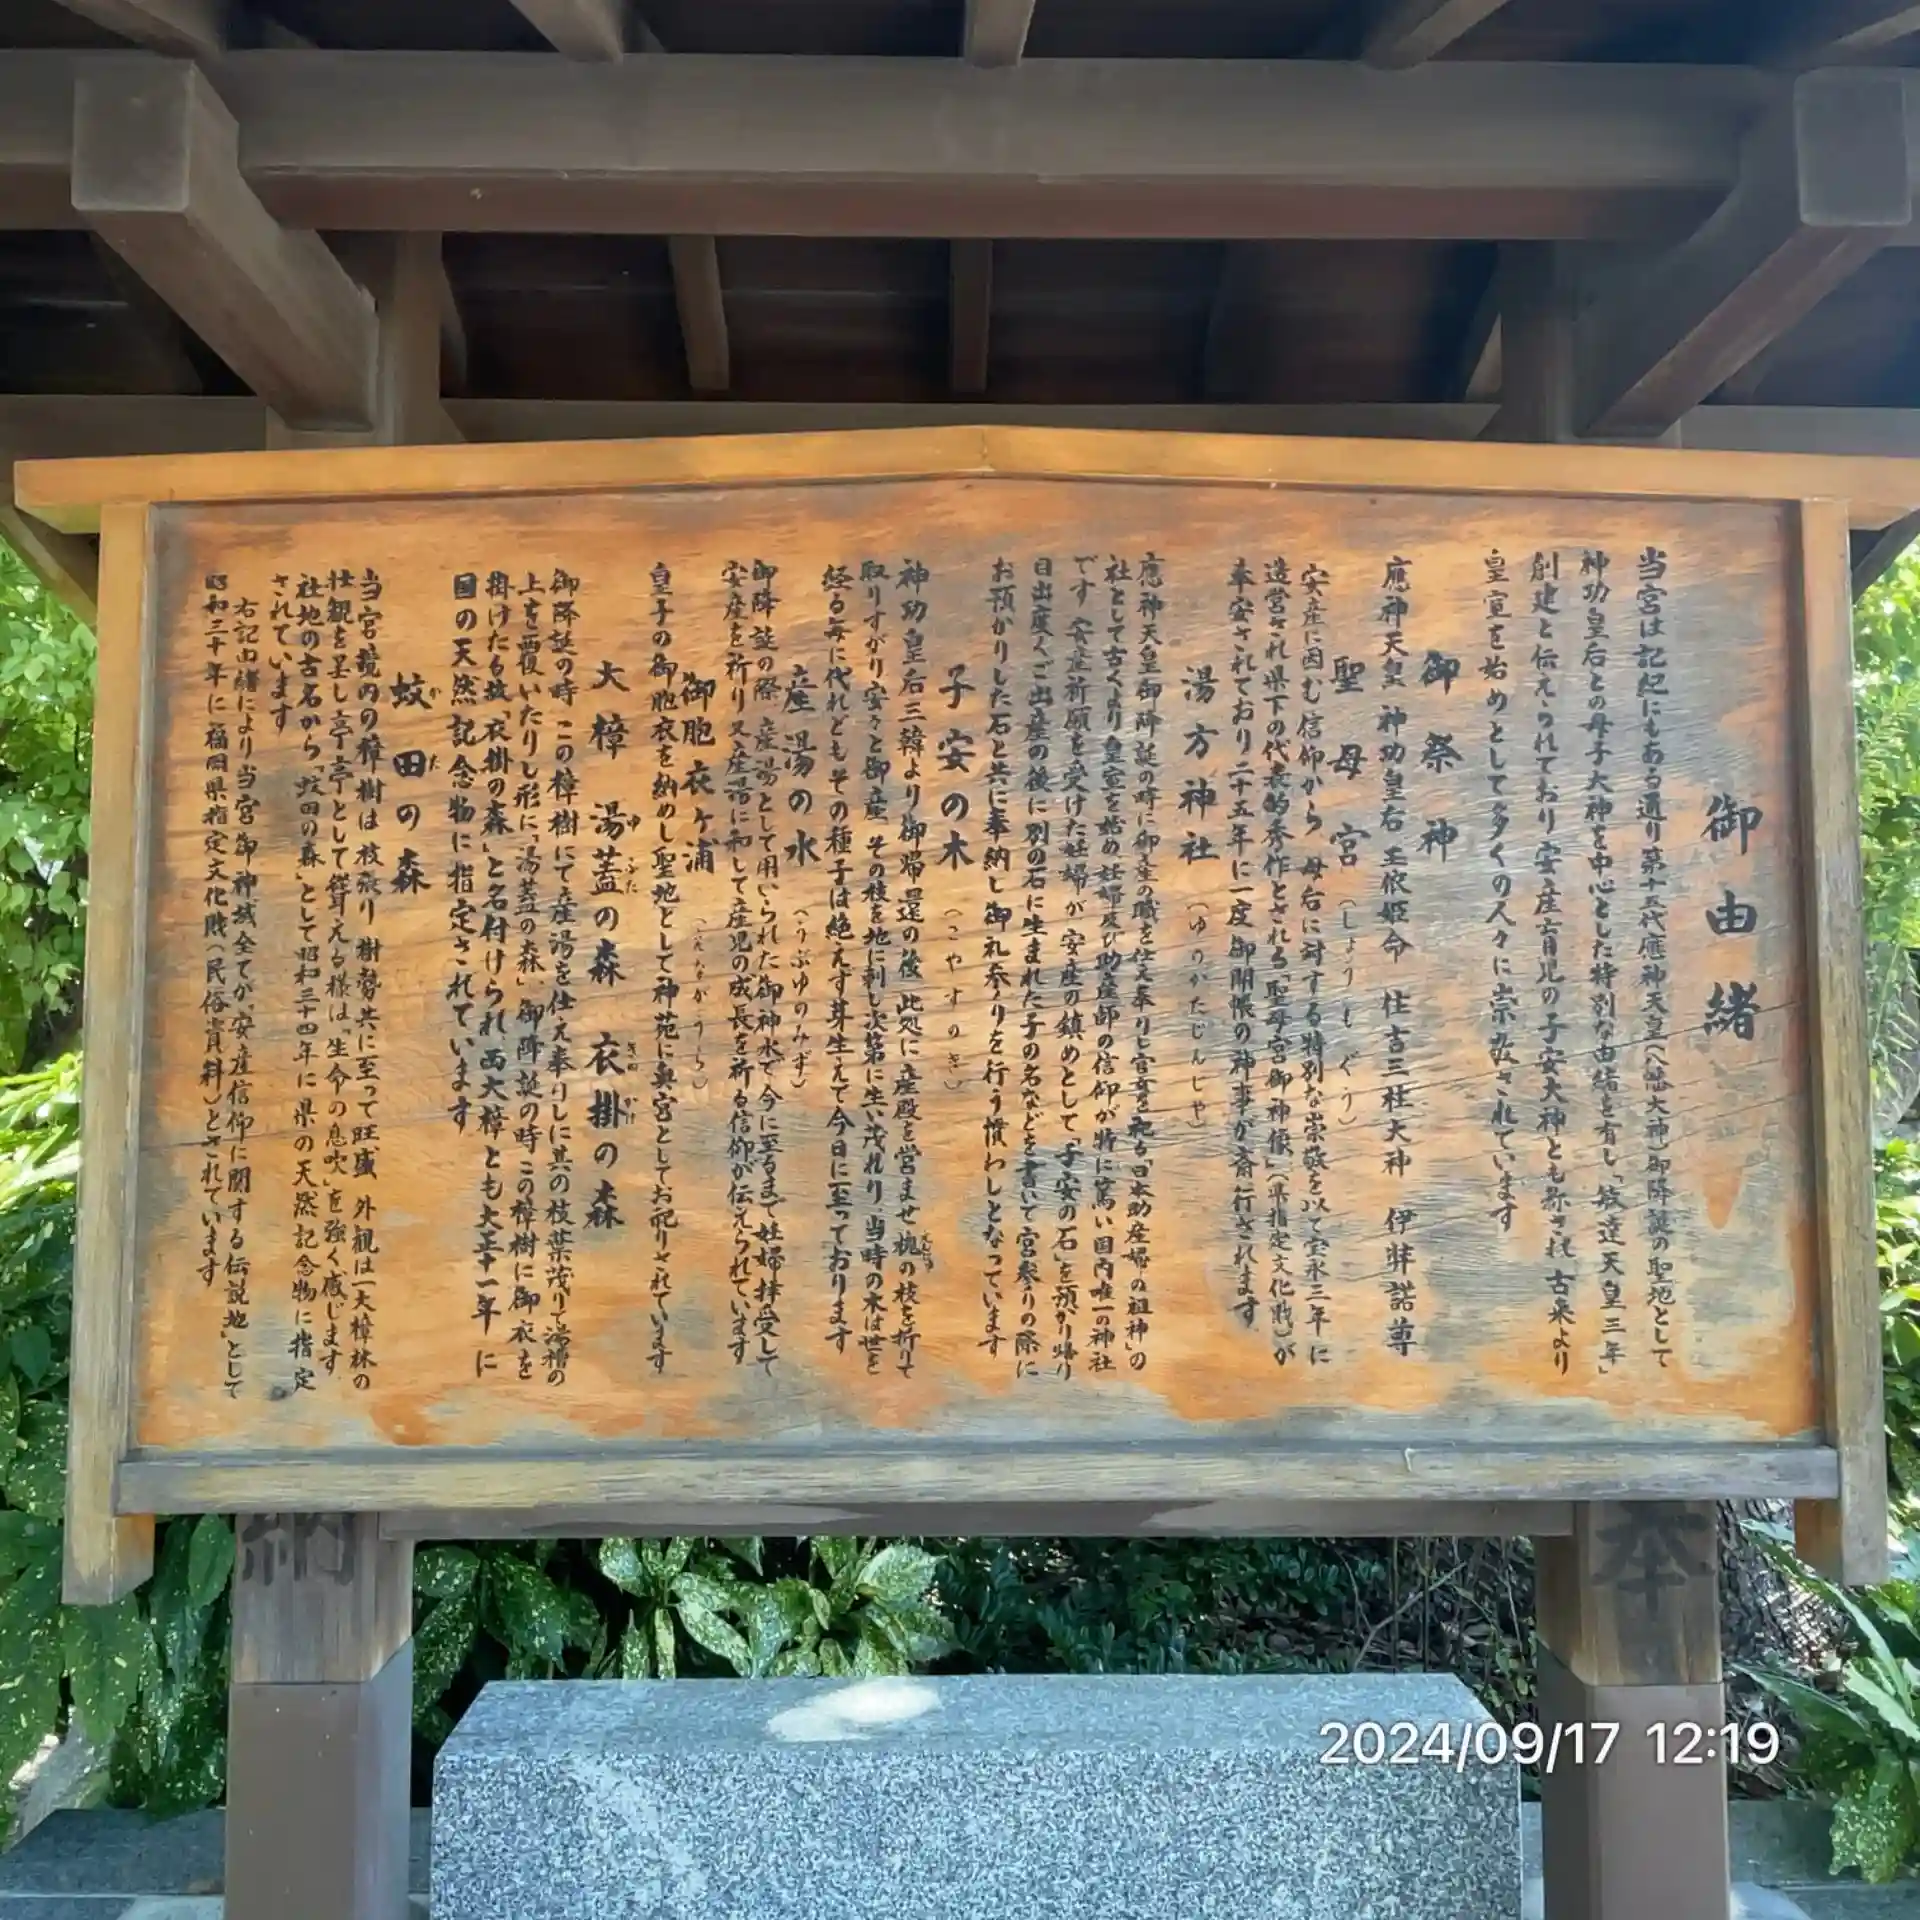 御由緒
当宮は記紀にもある通り第十五代應神天皇(八幡大神)御降誕の聖地として
神功皇后との母子大神を中心とした特別な由緒を有し「敏達天皇三年」
創建と伝えられており安産育児の子安大神とも称され 古来より
皇室を始めとして多くの人々に崇敬されています
御祭神
應神天皇 神功皇后 玉依姫命 住吉三柱大神 伊弉諾尊
聖母宮(しょうもぐう)
安産に因む信仰から 母后に対する特別な崇敬を以て宝永三年に
造営され県下の代表的秀作とされる「聖母宮御神像」(県指定文化財)が
奉安されており二十五年に一度御開帳の神事が斎行されます
湯方神社(ゆのかたじんじゃ)
應神天皇御降誕の時に御産の職を仕え奉りし官女を祀る「日本助産婦の祖神」の
社として古くより皇室を始め 妊婦及び助産師の信仰が特に篤い国内唯一の神社
です 安産祈願を受けた妊婦が安産の鎮めとして「子安の石」を預かり帰り
目出度くご出産の後に別の石に生まれた子の名などを書いて宮参りの際に
お預かりした石と共に奉納し御礼参りを行う慣わしとなっています
子安の木(こやすのき)
神功皇后三韓より御帰還の後 此処に産殿を営ませ槐の枝を折りて
取りすがり安々と御産 その枝を地に刺し次第に生い茂れり 当時の木は世を
経る毎に代れどもその種子は絶えず芽生えて今日に至っております
産湯の水(うぶゆのみず)
御降誕の際 産湯として用いられた御神水で今に至るまで妊婦拝受して
安産を祈り 又産湯に和して産児の成長を祈る信仰が伝えられています
御胞衣ヶ浦(おえながうら)
皇子の御胞衣を納めし聖地として神苑に奥宮としてお祀りされています
大樟 湯蓋の森 衣掛の森
ゆ ふた きぬ かけ
御降誕の時 この樟樹にて産湯を仕え奉りしに其の枝葉茂りて湯槽の
上を覆いたりし形に「湯蓋の森」、御降誕の時この樟樹に御衣を
掛けたる故「衣掛の森」と名付けられ、西大樟とも大正十一年に
国の天然記念物に指定されています
蚊田の森
か た
当宮境内の樟樹は枝張り 樹勢共に至って旺盛 外観は一大樟林の
壮観を呈し亭亭として聳える様は「生命の息吹」を強く感じます
社地の古名から「蚊田の森」として昭和三十四年に県の天然記念物に指定
されています
右記由緒により当宮御神域全てが、「安産信仰に関する伝説地」として
昭和三十年に福岡県指定文化財(民俗資料)とされています
奉
納
2024/09/17 12:19